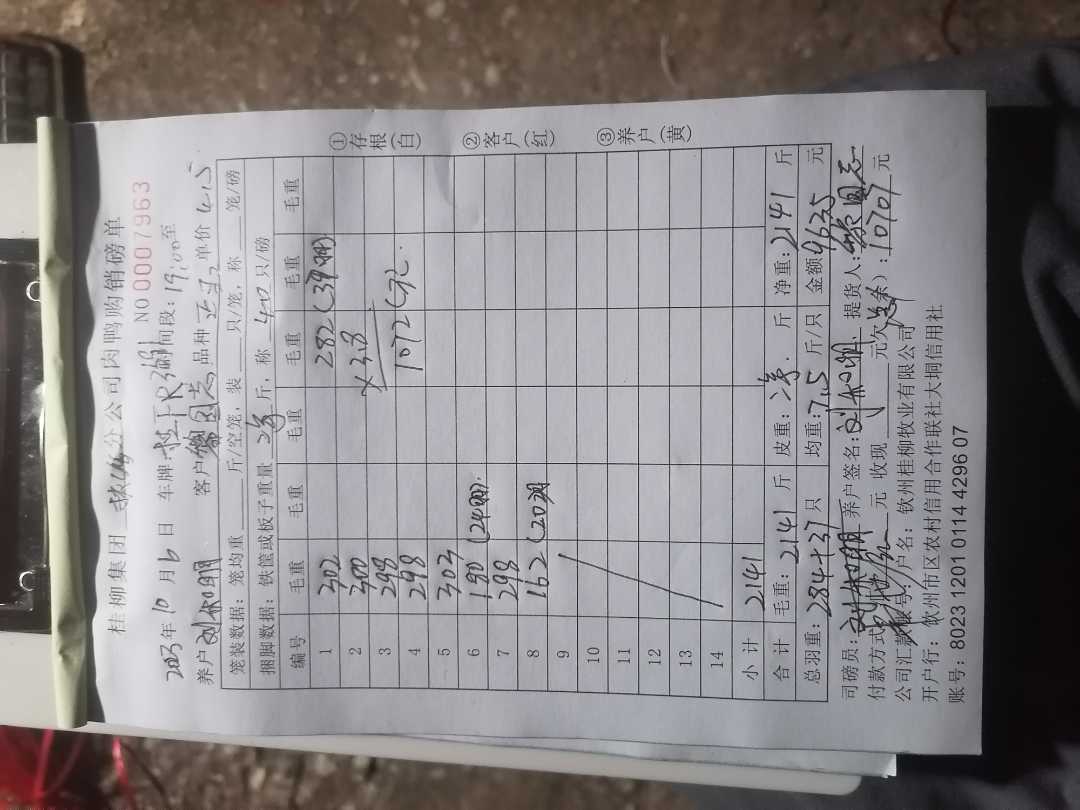 桂柳集团 分公司肉鸭购销磅单
NO 0007963
2023年10月6日 车牌: 时间段:19:00至
养户 刘和明 客户 国志 品种 单价 4.5
笼装数据: 笼均重 斤/空笼 装 只/笼, 称 笼/磅
捆脚数据: 铁筐或板子重量 净 斤, 称 40 只/磅
编号 毛重 毛重 毛重 毛重 毛重 毛重
1 302 282(39羽)
2 300 ×3.8
3 299 1072(元).
4 298
5 303
6 190(24羽).
7 298
8 162(20羽
9
10
11
12
13
14
小计 2141
合计 毛重:2141斤 皮重:净.斤 净重:2141斤
总羽重:284+37只 均重:7.5斤/只 金额9635元
司磅员:刘和明 养户签名:刘和明 提货人: 国志
付款方式 元 收现 元欠(余):10707元
公司汇款账号: 户名: 钦州桂柳牧业有限公司
开户行: 钦州市区农村信用合作联社大垌信用社
账号: 8023 1201 0114 4296 07
①存根(白)
②客户(红)
③养户(黄)